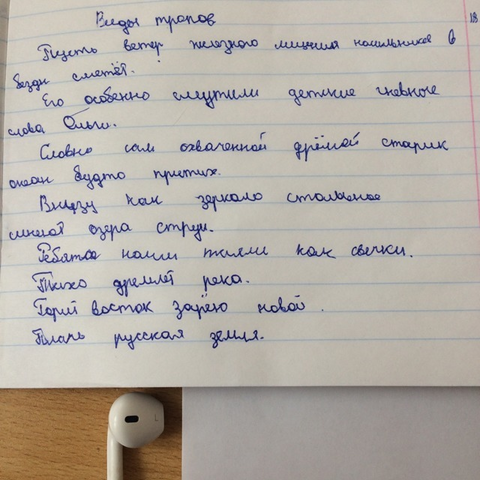 Виды тропов
18
Пусть ветер железного мщения насильников в
бездн сметёт.
Его особенно смутили детские гневные
слова Ольги.
Словно сам охваченной дрёмой старик
океан будто притих.
Внизу как зеркало стальное
синеют озера струи.
Ребятки наши таяли как свечки.
Тихо дремлет река.
Горит восток зарёю новой.
Плачь русская земля.